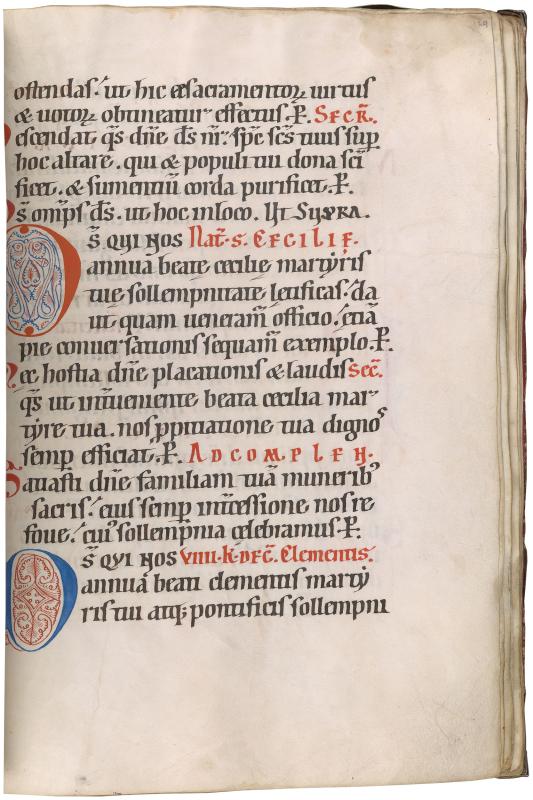 ostendas. ut hic & sacramentoꝝ uirtus
& uotoꝝ obtineatur effectus. P. SECR̄.
escendat q̄s dn̄e ds̄ nr̄. sp̄c sc̄s tuus sup̄
hoc altare. qui & populi tui dona sc̄i
ficet. & sumentiū corda purificet. P.
s̄ omp̄s ds̄. ut hoc inloco. Ut SUPRA.
DS̄ QUI NOS Nat̄. S. CECILIE.
annua beate cecilie martyris
tue sollempnitate letificas. da
ut quam ueneram̄ officio. etiā
pie conuersationis sequam̄ exemplo. P.
ec hostia dn̄e placationis & laudis Sec̄.
q̄s ut int̄ueniente beata cecilia mar
tyre tua. nos ꝓpitiatione tua dignos
semp̄ efficiat. P. AD COMPLEN.
Satiasti dn̄e familiam tuā munerib᾽
sacris. eius semp̄ int̄cessione nos re
foue. cui᾽ sollempnia celebramus. P.
DS̄ QUI NOS VIIII. K. DEC̄. Clementis.
annuā beati clementis marty
ris tui atq; pontificis sollempni